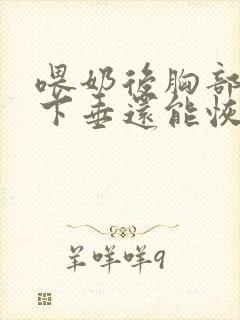 喂奶後胸部
下垂還能恢
羊咩咩9